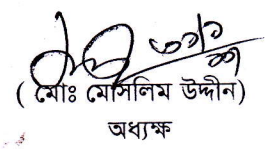 ( মোঃ মোসলিম উদ্দীন)
অধ্যক্ষ